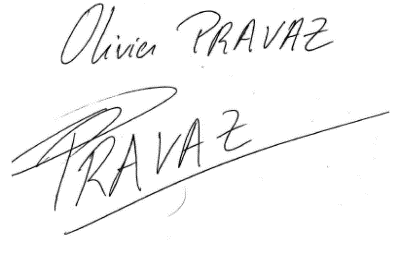 Olivier PRAVAZ
PRAVAZ